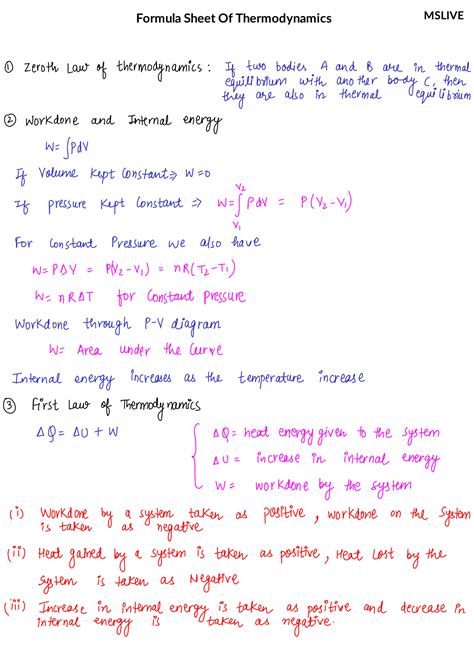 Formula Sheet Of Thermodynamics
MSLIVE
① Zeroth Law of thermodynamics : If two bodies A and B are in thermal
equilibrium with another body C, then
they are also in thermal equilibrium
② Workdone and Internal energy
W= ∫PdV
If Volume Kept Constant ⇒ W=0
If pressure Kept Constant ⇒ W= ∫ᵥ₁ⱽ² PdV = P(V₂-V₁)
For Constant Pressure we also have
W= PΔV = P(V₂-V₁) = nR(T₂-T₁)
W= nRΔT for Constant Pressure
Workdone through P-V diagram
W= Area under the Curve
Internal energy increases as the temperature increase
③ First Law of Thermodynamics
ΔQ= ΔU + W
ΔQ= heat energy given to the system
ΔU= increase in internal energy
W= workdone by the system
(i) Workdone by a system taken as positive, workdone on the system
is taken as negative
(ii) Heat gained by a system is taken as positive, Heat Lost by the
system is taken as Negative
(iii) Increase in internal energy is taken as positive and decrease in
internal energy is taken as negative.